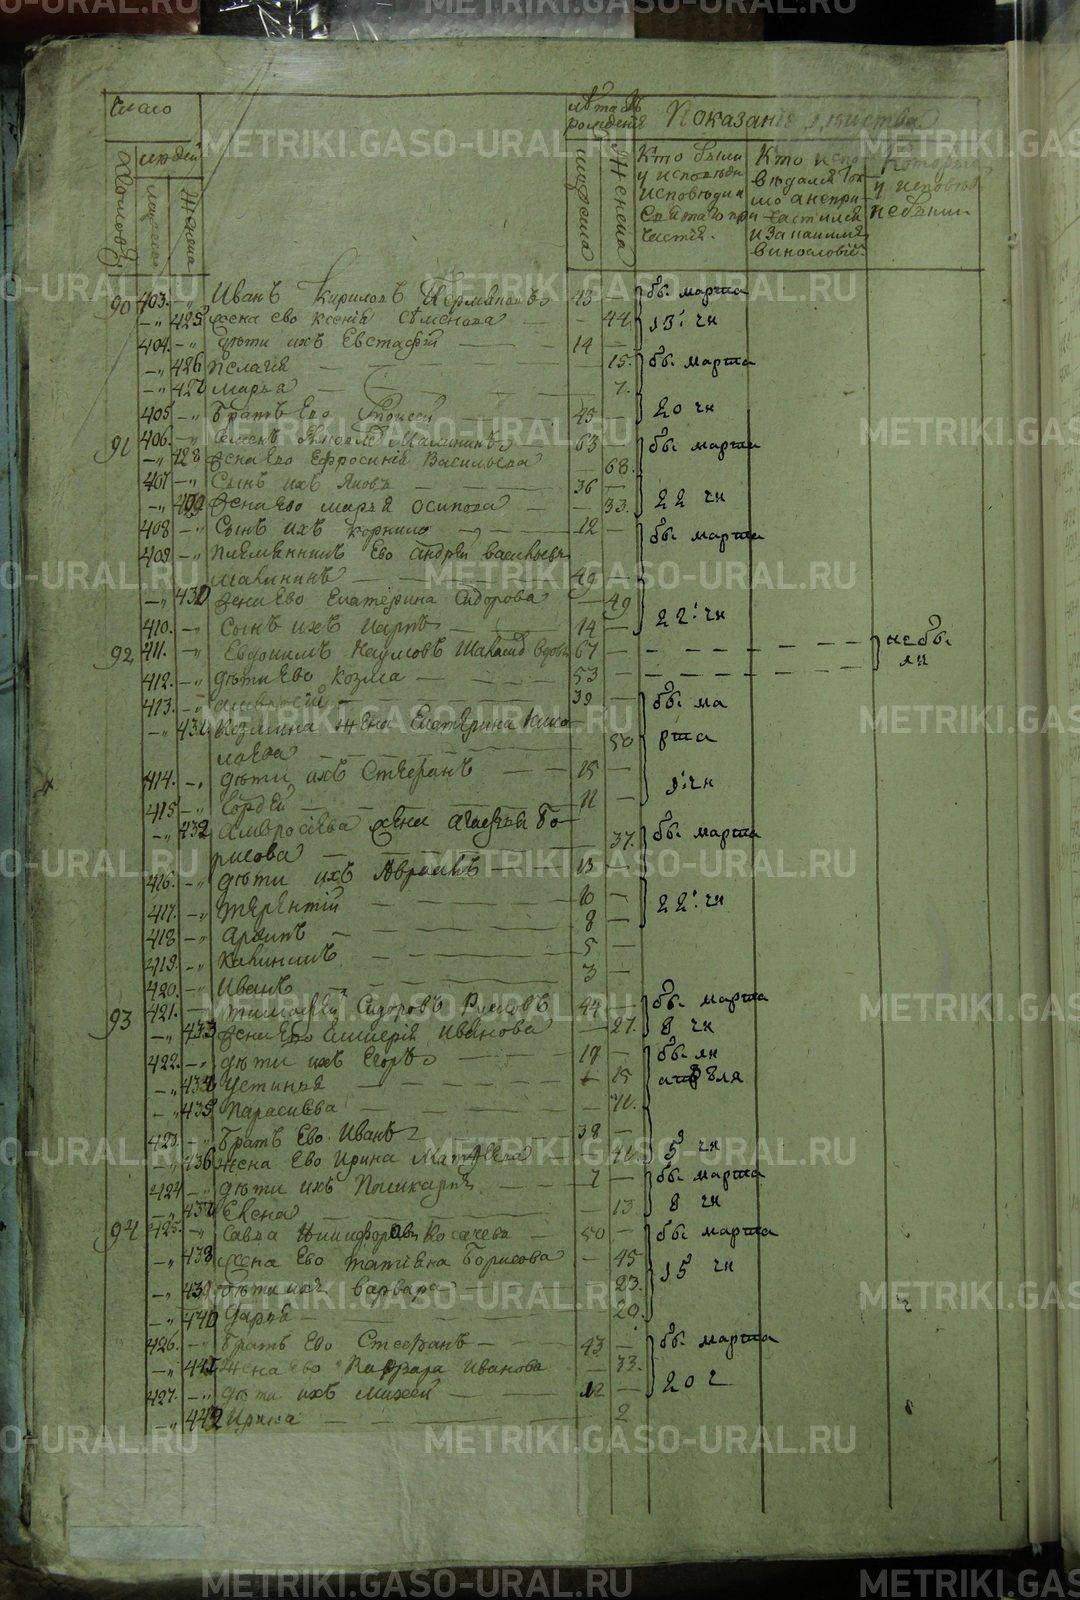 Число
лѣта отъ рожденія
Показаніе
домовъ
людей
мужеска
женска
мужеска
женска
Кто были у исповѣди исповѣди и святаго причастія.
Кто испо- вѣдался ток- мо а непри- частился и за какимъ винословіем.
Которыи у исповѣд не были.
90 403. —„ Иванъ Кирилов 43 — бы. марта
—„ 425 жена ево Ксенія Семенова — — 44 13: чи
404. —„ дѣти ихъ Евстафій — 14 —
—„ 426 Пелагія — 15. бы. марта
—„ 427 Марья — 7.
405 —„ братъ Ево — 45 — 20 чи
91 406. —„ Семенъ Малининъ 63 бы. марта
—„ 428 жена Ево Ефросинія Васильева — 68.
407 —„ Сынъ ихъ Яковъ — 36 —
—„ 429 жена Ево Марья Осипова — — 33. 22 чи
408 —„ Сынъ ихъ Корнило — 12 — бы. марта
409. —„ племянникъ Ево Андрей Васильевъ
Малининъ — 49 —
—„ 430 жена Ево Екатерина Сидорова — 49
410. —„ Сынъ ихъ Карпъ — 14 — 22: чи
92 411. —„ Евдокимъ Наумовъ вдовъ 67 — — — не бы
412. —„ дѣти Ево Козма — 53 — — — ли
413. —„ Амвросій — 39 — бы. ма
—„ 431 Козмина жена Екатерина Нико-
лаева — 50 рта
414. —„ дѣти ихъ Стефанъ — 15 — 9: чи
415 —„ Гордѣй — 11 —
—„ 432 Амвросіева жена Агафья Бо-
рисова — 37. бы. марта
416. —„ дѣти ихъ Авраамъ — 13 —
417. —„ Терентій — 10 — 22: чи
418 —„ Архипъ — 8 —
419. —„ Калинникъ — 5 —
420. —„ Иванъ — 3 —
93 421. — Тимофей Сидоровъ 44 — бы. марта
—„ 433 жена Ево Гликерія Иванова — 27. 8 чи
422. —„ дѣти ихъ Егоръ — 17 — бы. ли
—„ 434 Устинья — 15 апреля
—„ 435 Парасиева —
423. —„ братъ Ево Иванъ 38 —
—„ 436 жена Ево Ирина Матвеева — 5 чи
424 —„ дѣти ихъ Поликарпъ — 7 — бы. марта
—„ 437 Елена — 13 8 чи
94 425. —„ Савва Никифоровъ Косачевъ — 50 — бы. марта
—„ 438 жена Ево Татіяна Борисова — 45 15 чи
—„ 439 дѣти ихъ Варвара — 23.
—„ 440 Дарья — 20.
426. —„ братъ Ево Стефанъ — 43 — бы. марта
—„ 441 жена Ево Варвара Иванова — 33.
427. —„ дѣти ихъ Михей — 12 — 20 ч
—„ 442 Ирина — 2
METRIKI.GASO-URAL.RU